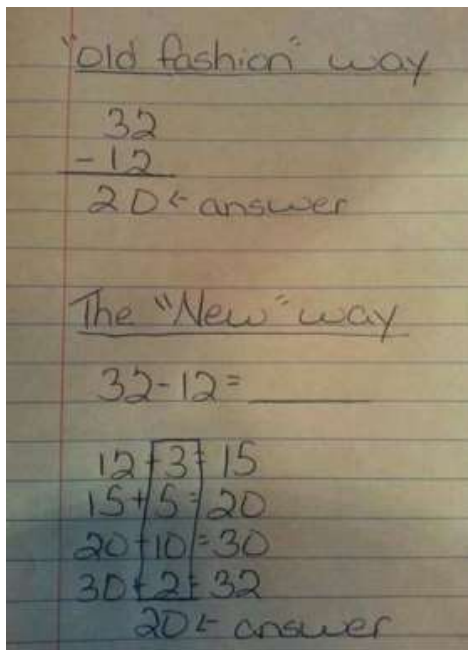 "old fashion" way
32
- 12
20 ← answer
The "New" way
32-12= ______
12+3=15
15+5=20
20+10=30
30+2=32
20 ← answer